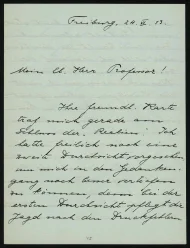 Freiburg, 24. III. 13.
Mein l. Herr Professor!
Ihre freundl. Karte
traf mich gerade am
Schluss der. Ich
hatte freilich noch eine
zweite Durchsicht vorgesehen
um mich in den Gedanken-
gang noch besser vertiefen
zu können, denn bei der
ersten Durchsicht pflegt die
Jagd nach den Druckfehlern